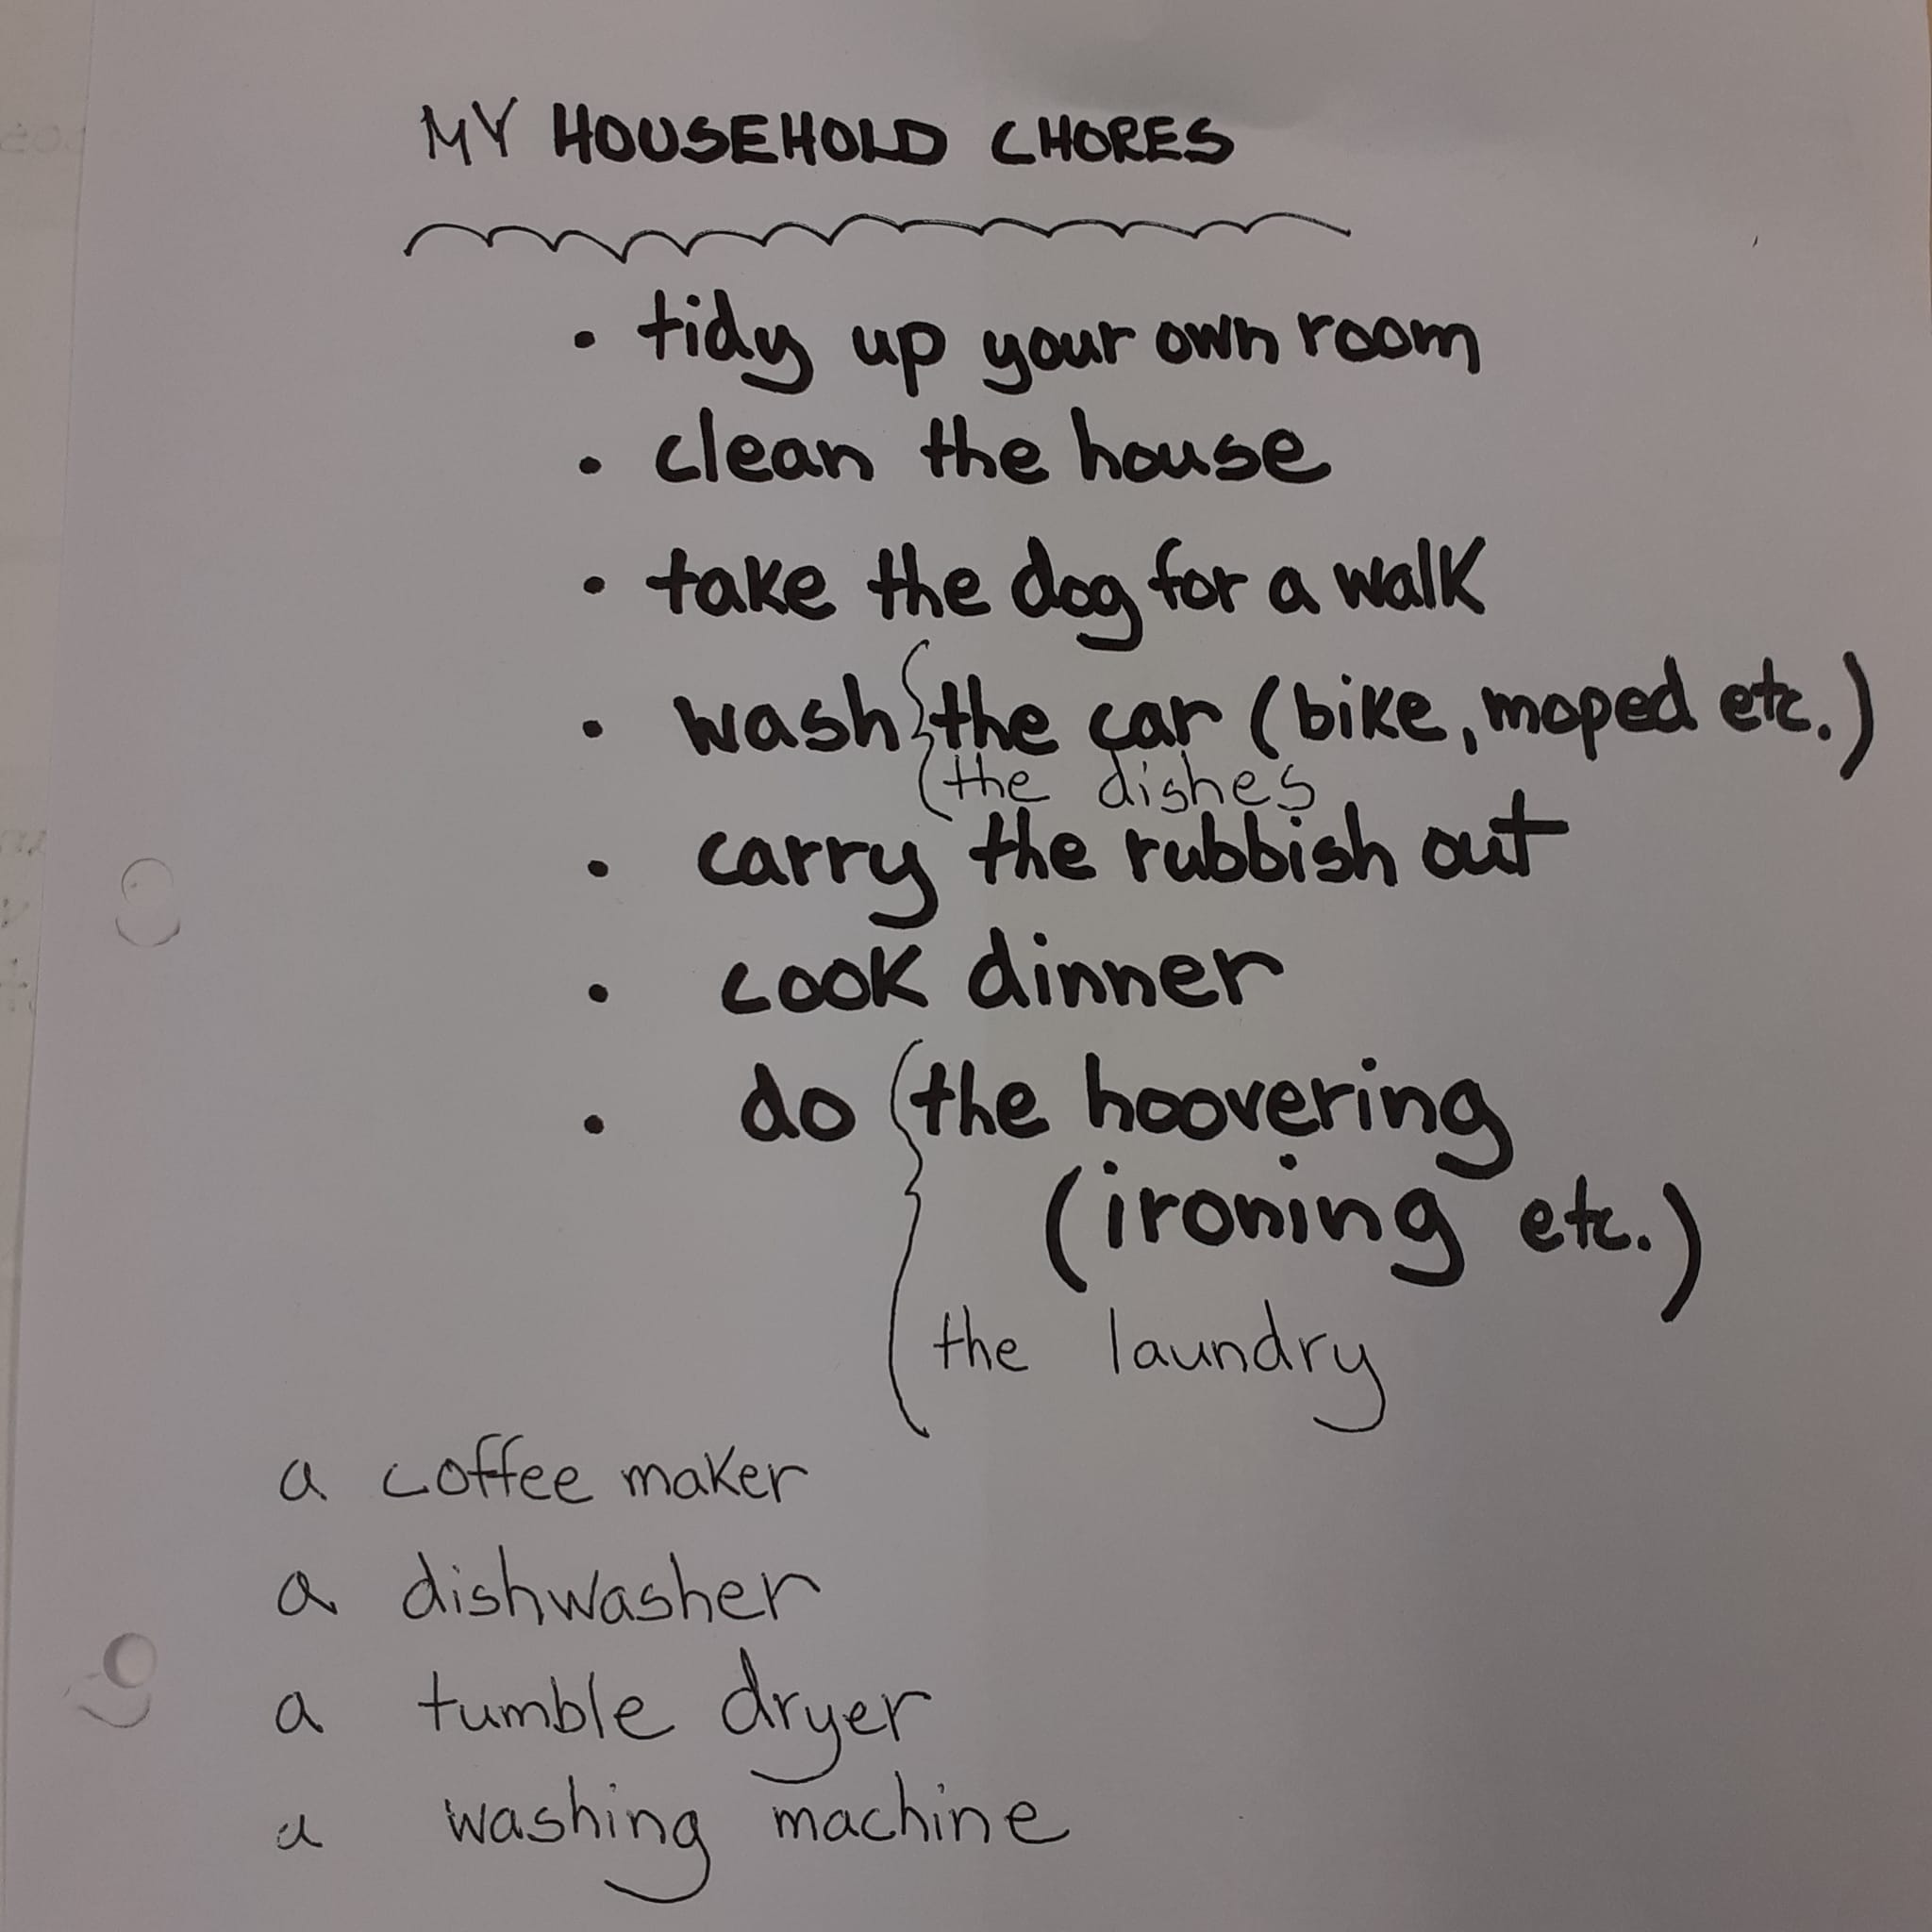 MY HOUSEHOLD CHORES
• tidy up your own room
• clean the house
• take the dog for a walk
• wash { the car (bike, moped etc.)
the dishes
• carry the rubbish out
• cook dinner
• do { the hoovering
(ironing etc.)
the laundry
a coffee maker
a dishwasher
a tumble dryer
a washing machine